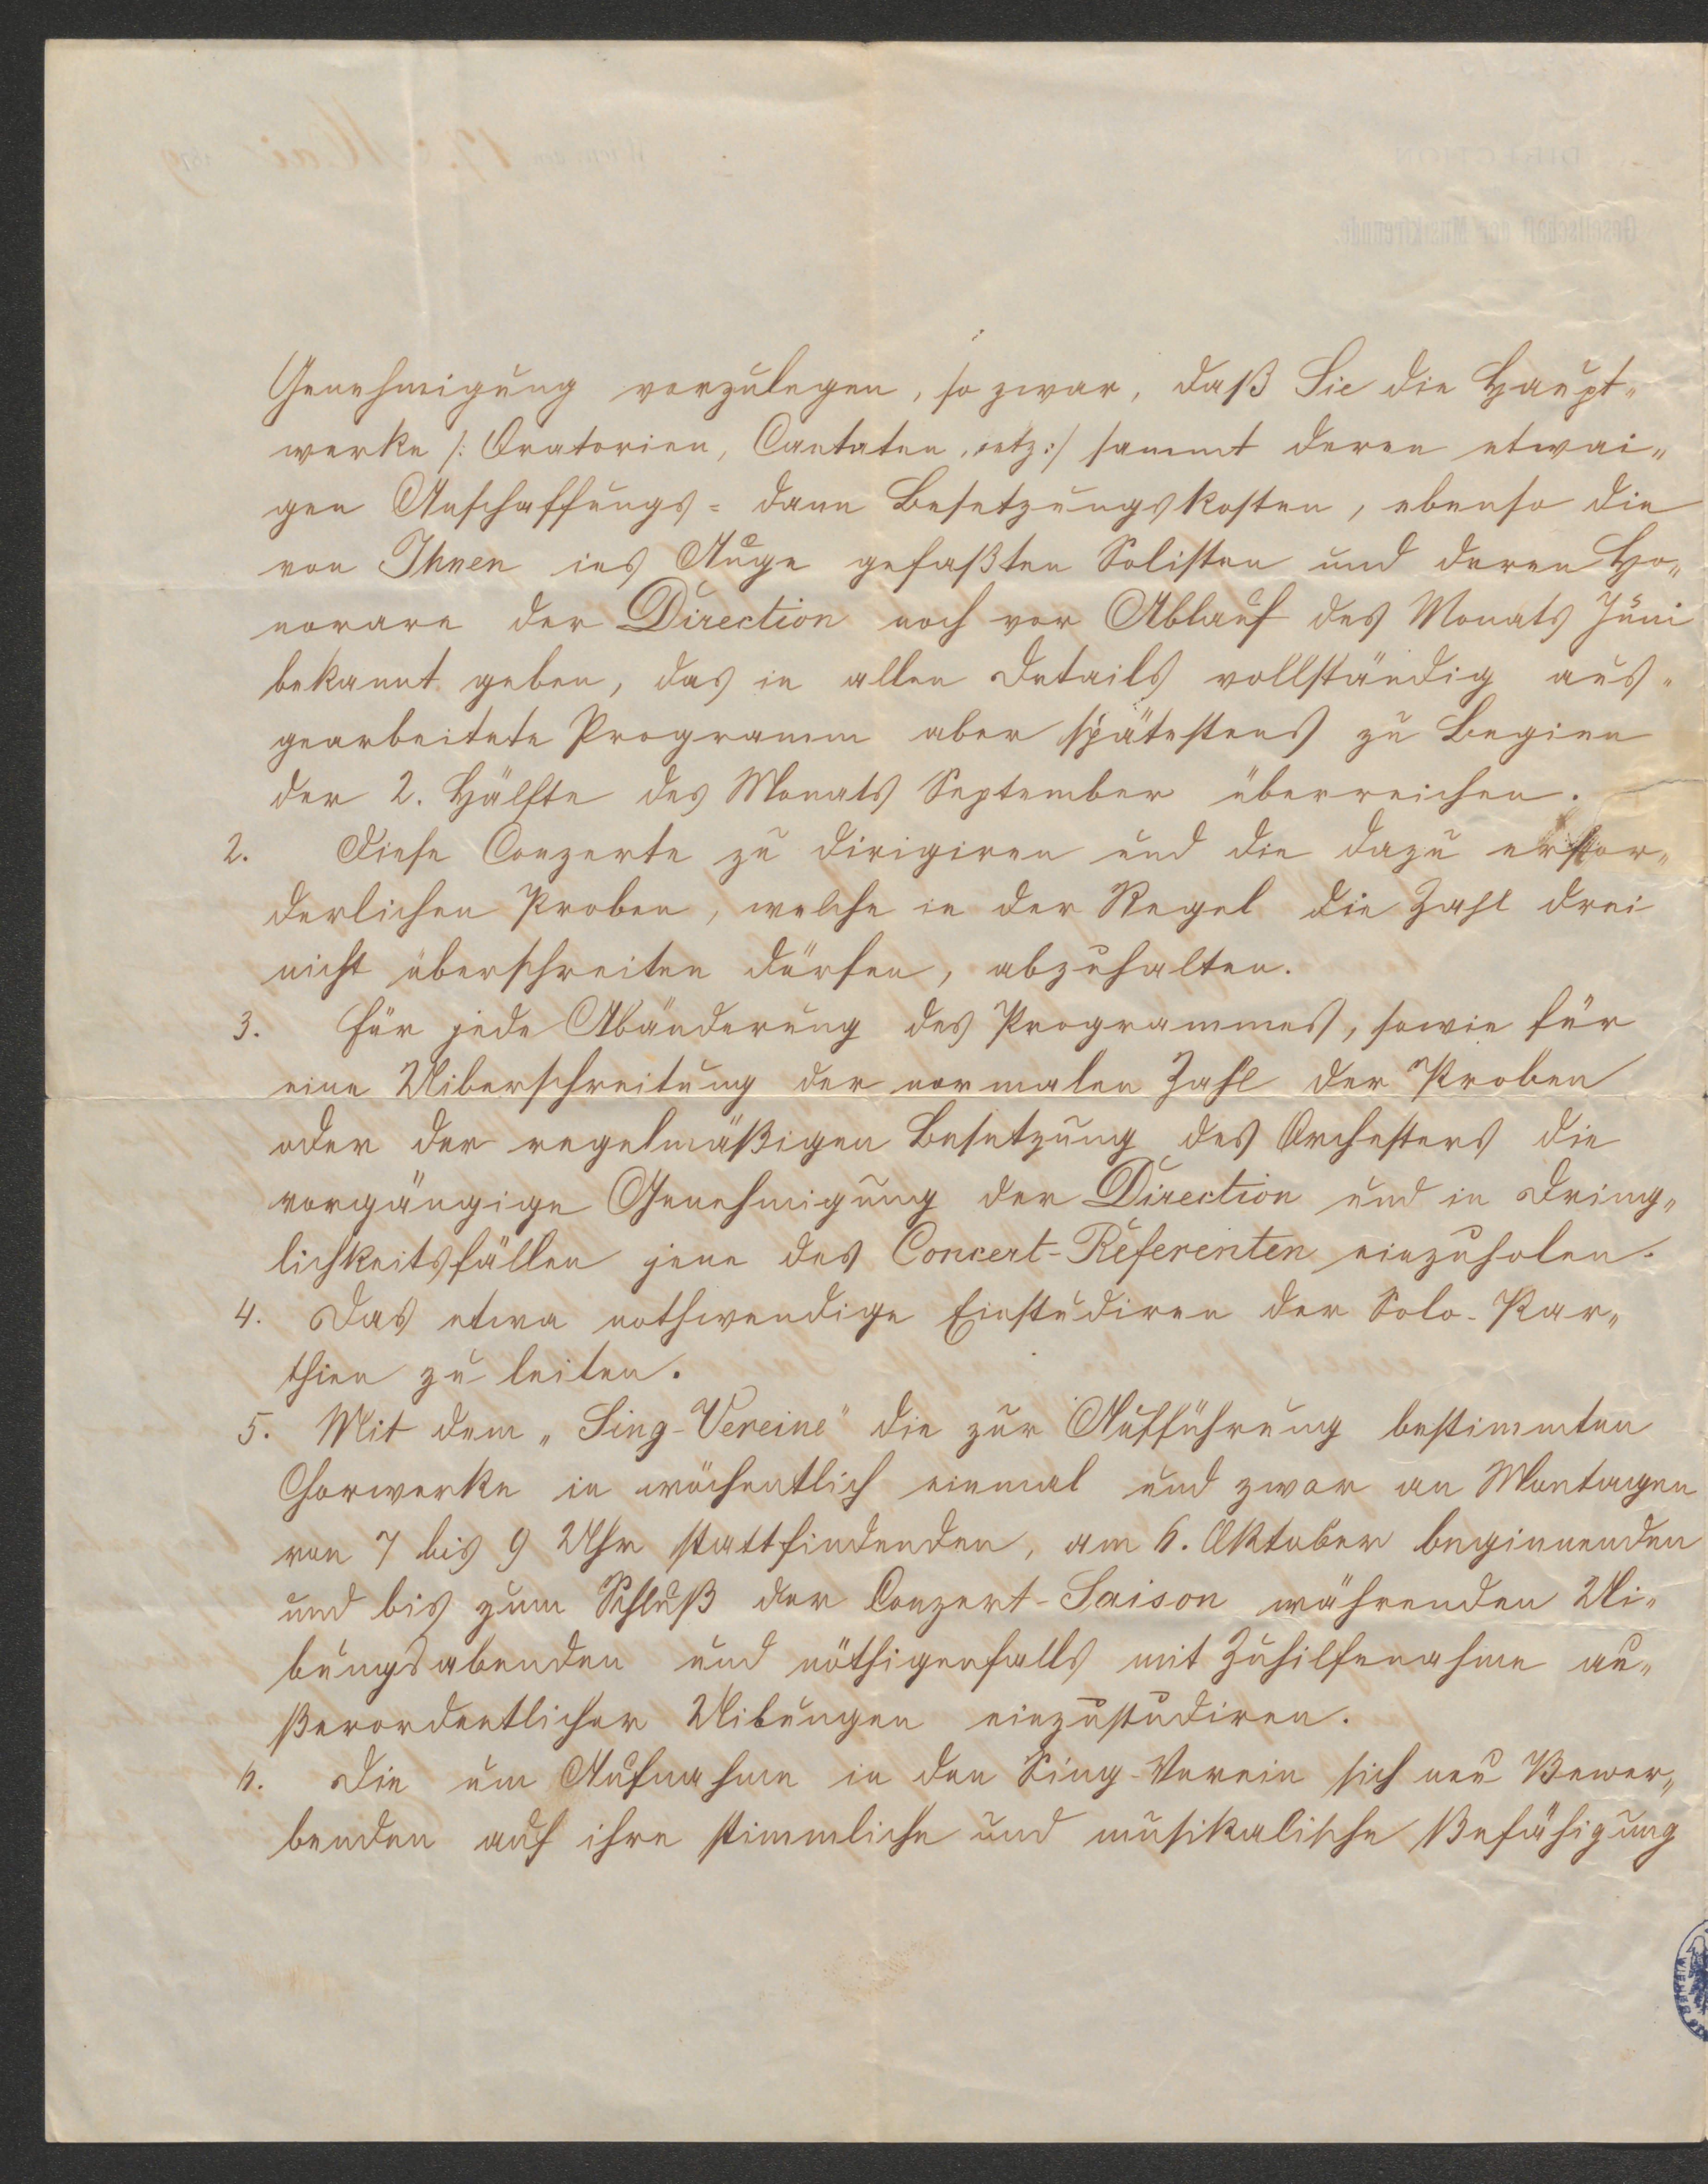 Genehmigung vorzulegen, so zwar, daß Sie die Haupt„
werke /: Oratorien, Cantaten, etz :/ sammt deren etwai„
gen Anschaffungs- dann Besetzungskosten, ebenso die
von Ihnen ins Auge gefaßten Solisten und deren Ho„
norare der Direction noch vor Ablauf des Monats Juni
bekannt geben, das in allen Details vollständig aus„
gearbeitete Programm aber spätestens zu Beginn
der 2. Hälfte des Monats September überreichen.
2. Diese Conzerte zu dirigiren und die dazu erfor„
derlichen Proben, welche in der Regel die Zahl drei
nicht überschreiten dürfen, abzuhalten.
3. Für jede Abänderung des Programmes, sowie für
eine Uiberschreitung der normalen Zahl der Proben
oder der regelmäßigen Besetzung des Orchesters die
vorgängige Genehmigung der Direction und in Dring„
lichkeitsfällen jene des Concert-Referenten einzuholen.
4. Das etwa nothwendige Einstudiren der Solo-Par„
thien zu leiten.
5. Mit dem „Sing-Vereine" die zur Aufführung bestimmten
Chorwerke in wöchentlich einmal und zwar an Montagen
von 7 bis 9 Uhr stattfindenden, am 6. Oktober beginnenden
und bis zum Schluß der Conzert-Saison währenden Ui„
bungsabenden und nöthigenfalls mit Zuhilfenahme au„
ßerordentlicher Uibungen einzustudiren.
6. Die um Aufnahme in den Sing-Verein sich neu Bewer„
benden auf ihre stimmliche und musikalische Befähigung